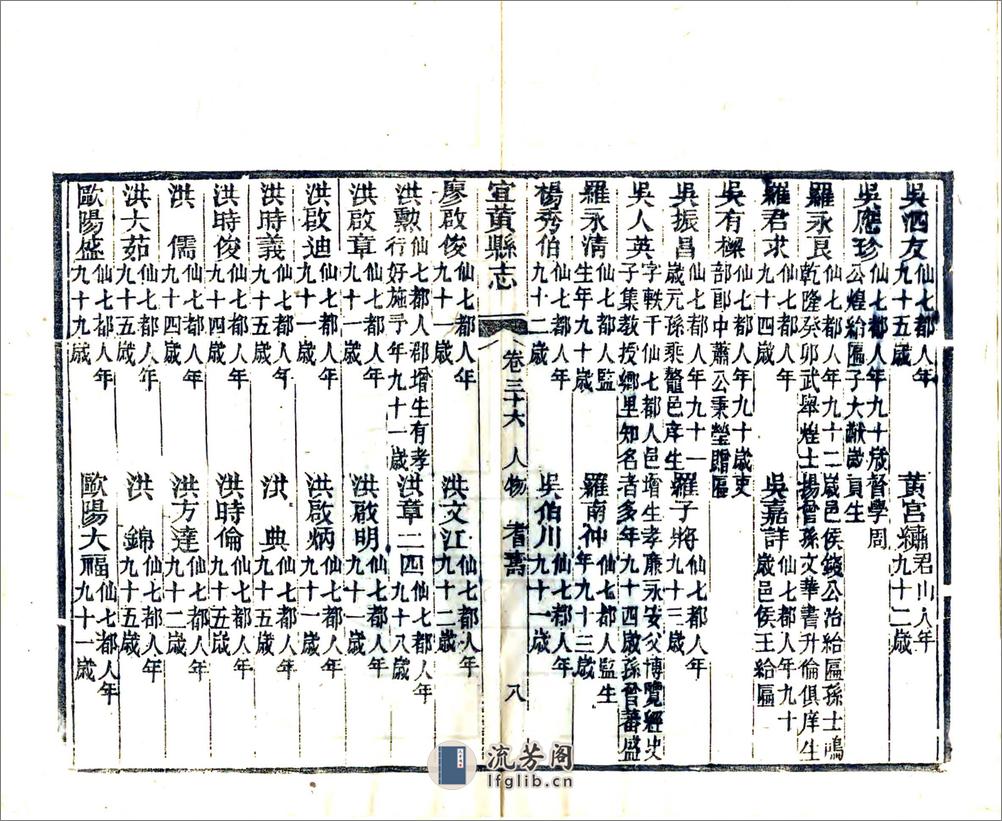 吳泗友仙七都人年九十五歲　黃宮繡君山人年九十二歲
吳應珍仙七都人年九十歲督學周公煌給匾子大猷歲貢生
羅永良仙七都人年九十二歲邑侯錢公治給匾孫士鳴乾隆癸卯武舉煌士揚曾孫文華書升倫俱庠生
羅君求仙七都人年九十四歲　吳嘉詳仙七都人年九十歲邑侯王給匾
吳有檪仙七都人年九十歲吏部郎中蕭公秉瑩贈匾
吳振昌仙七都人年九十一歲元孫乘鼇邑庠生　羅子將仙七都人年九十三歲
吳人英字軼千仙七都人邑增生孝廉永安父博覽經史子集教授鄉里知名者多年九十四歲孫曾蕃盛
羅永清仙七都人監生年九十歲　羅南仲仙七都人監生年九十三歲
楊秀伯仙七都人年九十二歲　吳伯川仙七都人年九十一歲
宜黃縣志　卷三十六　人物　耆壽　八
廖啟俊仙七都人年九十一歲　洪文江仙七都人年九十二歲
洪勲仙七都人郡增生有孝行好施予年九十一歲　洪章二四仙七都人年九十八歲
洪啟章仙七都人年九十一歲　洪啟明仙七都人年九十一歲
洪啟迪仙七都人年九十一歲　洪啟炳仙七都人年九十一歲
洪時義仙七都人年九十五歲　洪典仙七都人年九十五歲
洪時俊仙七都人年九十四歲　洪時倫仙七都人年九十五歲
洪儒仙七都人年九十四歲　洪方達仙七都人年九十二歲
洪大茹仙七都人年九十五歲　洪錦仙七都人年九十五歲
歐陽盛仙七都人年九十九歲　歐陽大福仙七都人年九十一歲
流芳阁
lfglib.cn